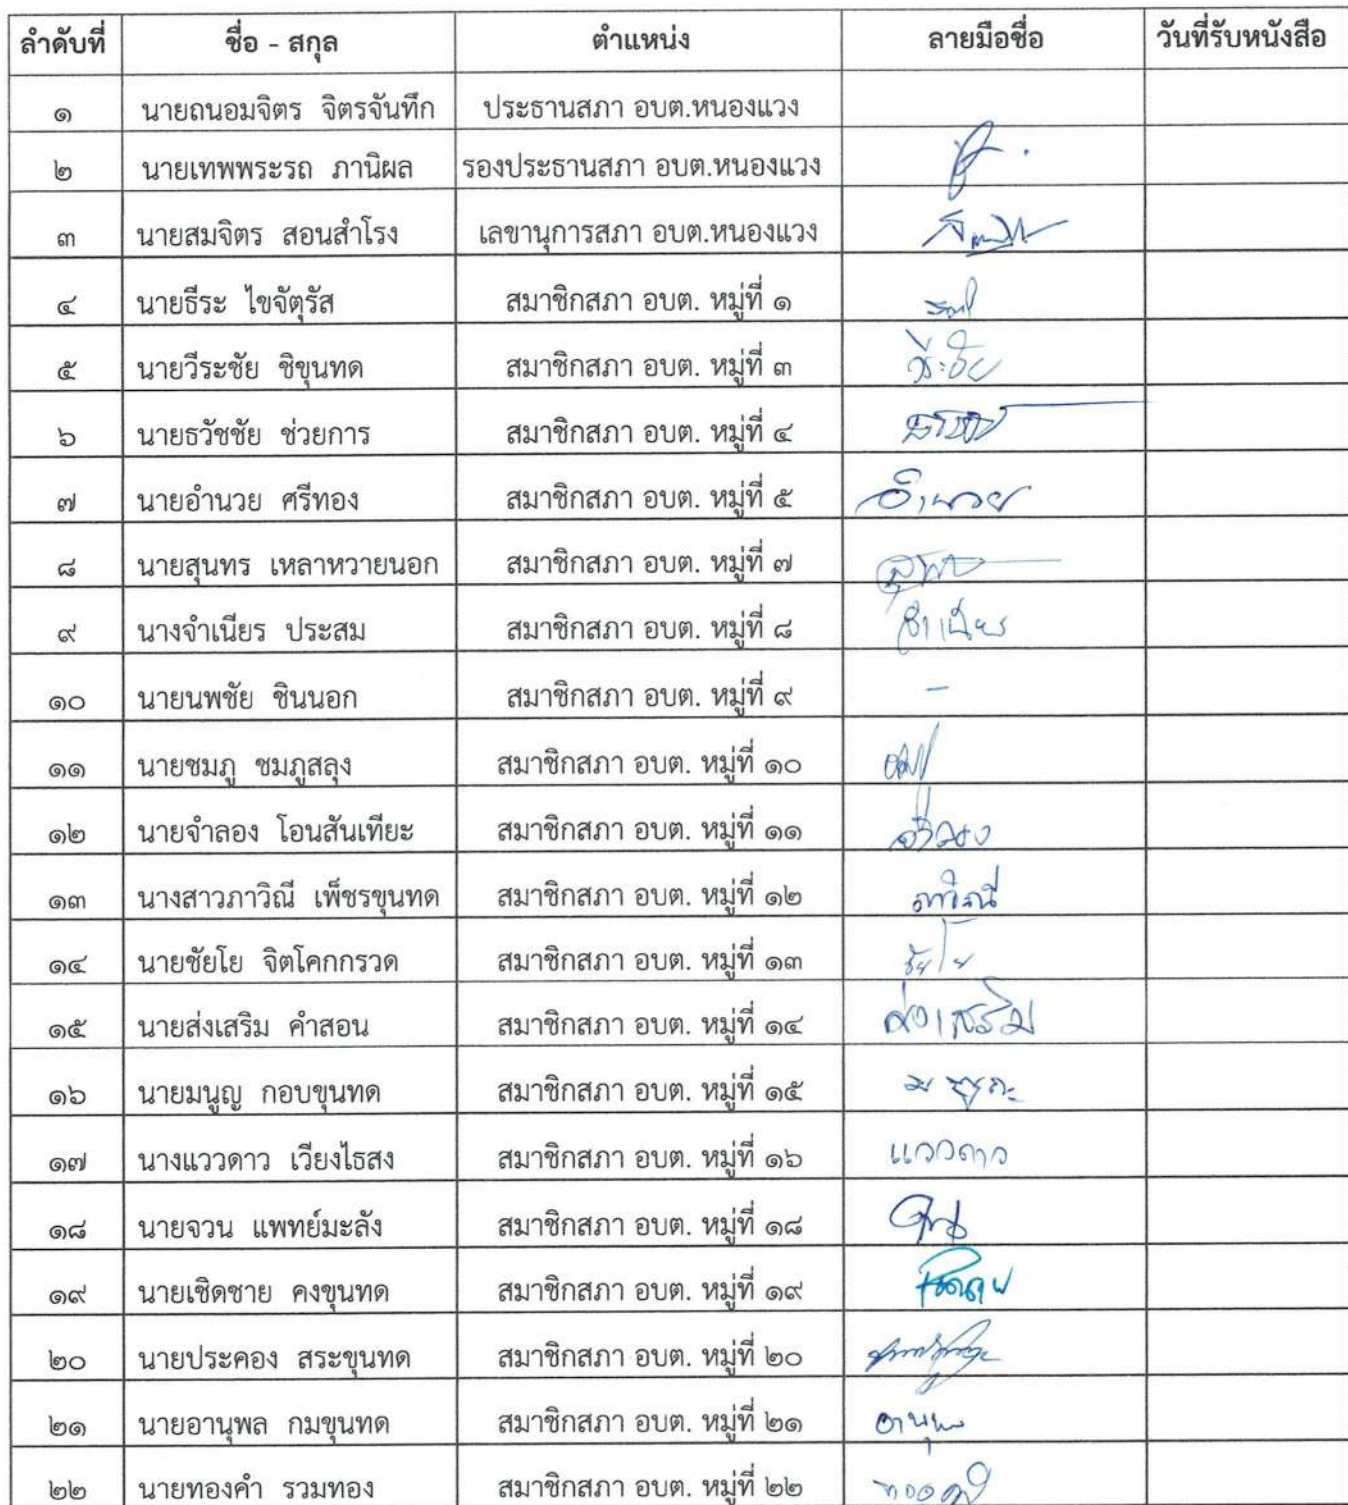 ลำดับที่ ชื่อ - สกุล ตำแหน่ง ลายมือชื่อ วันที่รับหนังสือ
๑ นายถนอมจิตร จิตรจันทึก ประธานสภา อบต.หนองแวง
๒ นายเทพพระรถ ภานิผล รองประธานสภา อบต.หนองแวง
๓ นายสมจิตร สอนสำโรง เลขานุการสภา อบต.หนองแวง
๔ นายธีระ ไขจัตุรัส สมาชิกสภา อบต. หมู่ที่ ๑
๕ นายวีระชัย ชิขุนทด สมาชิกสภา อบต. หมู่ที่ ๓ วีระชัย
๖ นายธวัชชัย ช่วยการ สมาชิกสภา อบต. หมู่ที่ ๔
๗ นายอำนวย ศรีทอง สมาชิกสภา อบต. หมู่ที่ ๕ อำนวย
๘ นายสุนทร เหลาหวายนอก สมาชิกสภา อบต. หมู่ที่ ๗
๙ นางจำเนียร ประสม สมาชิกสภา อบต. หมู่ที่ ๘ จำเนียร
๑๐ นายนพชัย ชินนอก สมาชิกสภา อบต. หมู่ที่ ๙ -
๑๑ นายชมภู ชมภูสลุง สมาชิกสภา อบต. หมู่ที่ ๑๐
๑๒ นายจำลอง โอนสันเทียะ สมาชิกสภา อบต. หมู่ที่ ๑๑ จำลอง
๑๓ นางสาวภาวิณี เพ็ชรขุนทด สมาชิกสภา อบต. หมู่ที่ ๑๒ ภาวิณี
๑๔ นายชัยโย จิตโคกกรวด สมาชิกสภา อบต. หมู่ที่ ๑๓ ชัยโย
๑๕ นายส่งเสริม คำสอน สมาชิกสภา อบต. หมู่ที่ ๑๔ ส่งเสริม
๑๖ นายมนูญ กอบขุนทด สมาชิกสภา อบต. หมู่ที่ ๑๕
๑๗ นางแววดาว เวียงไธสง สมาชิกสภา อบต. หมู่ที่ ๑๖ แววดาว
๑๘ นายจวน แพทย์มะลัง สมาชิกสภา อบต. หมู่ที่ ๑๘
๑๙ นายเชิดชาย คงขุนทด สมาชิกสภา อบต. หมู่ที่ ๑๙
๒๐ นายประคอง สระขุนทด สมาชิกสภา อบต. หมู่ที่ ๒๐
๒๑ นายอานุพล กมขุนทด สมาชิกสภา อบต. หมู่ที่ ๒๑
๒๒ นายทองคำ รวมทอง สมาชิกสภา อบต. หมู่ที่ ๒๒ ทองคำ